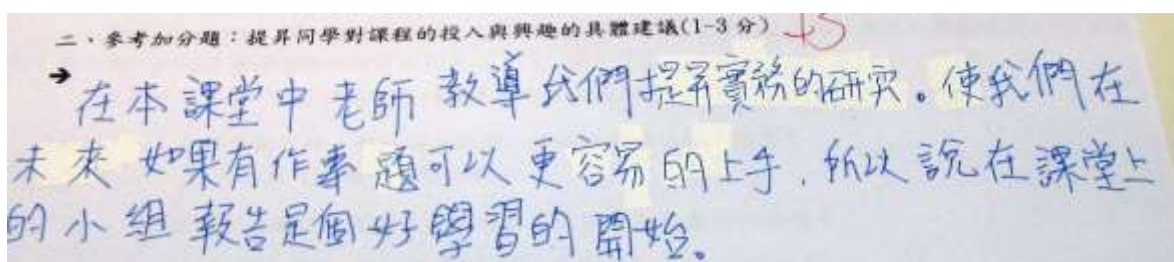 二、參考加分題：提昇同學對課程的投入與興趣的具體建議(1-3 分) +3
→ 在本課堂中老師教導我們提昇實務的研究。使我們在
未來如果有作專題可以更容易的上手，所以說在課堂上
的小組報告是個好學習的開始。